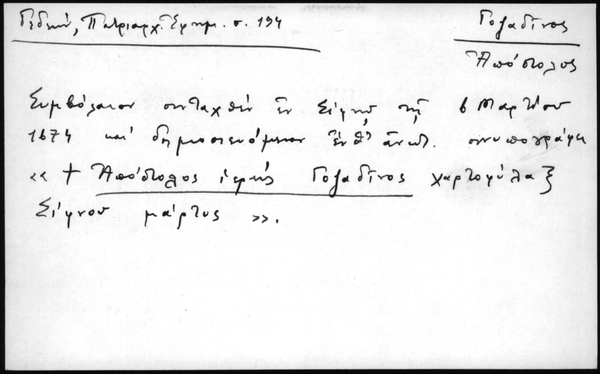 Γεδεών, Πατριαρχ. Ἐφημ. σ. 194
Γοζαδῖνος
Ἀπόστολος
Συμβόλαιον συνταχθὲν ἐν Σίφνῳ τῇ 6 Μαρτίου
1674 καὶ δημοσιευόμενον ἔνθ' ἀνωτ. συνυπογράφει
« † Ἀπόστολος ἱερεὺς Γοζαδῖνος χαρτοφύλαξ
Σίφνου μάρτυς ».